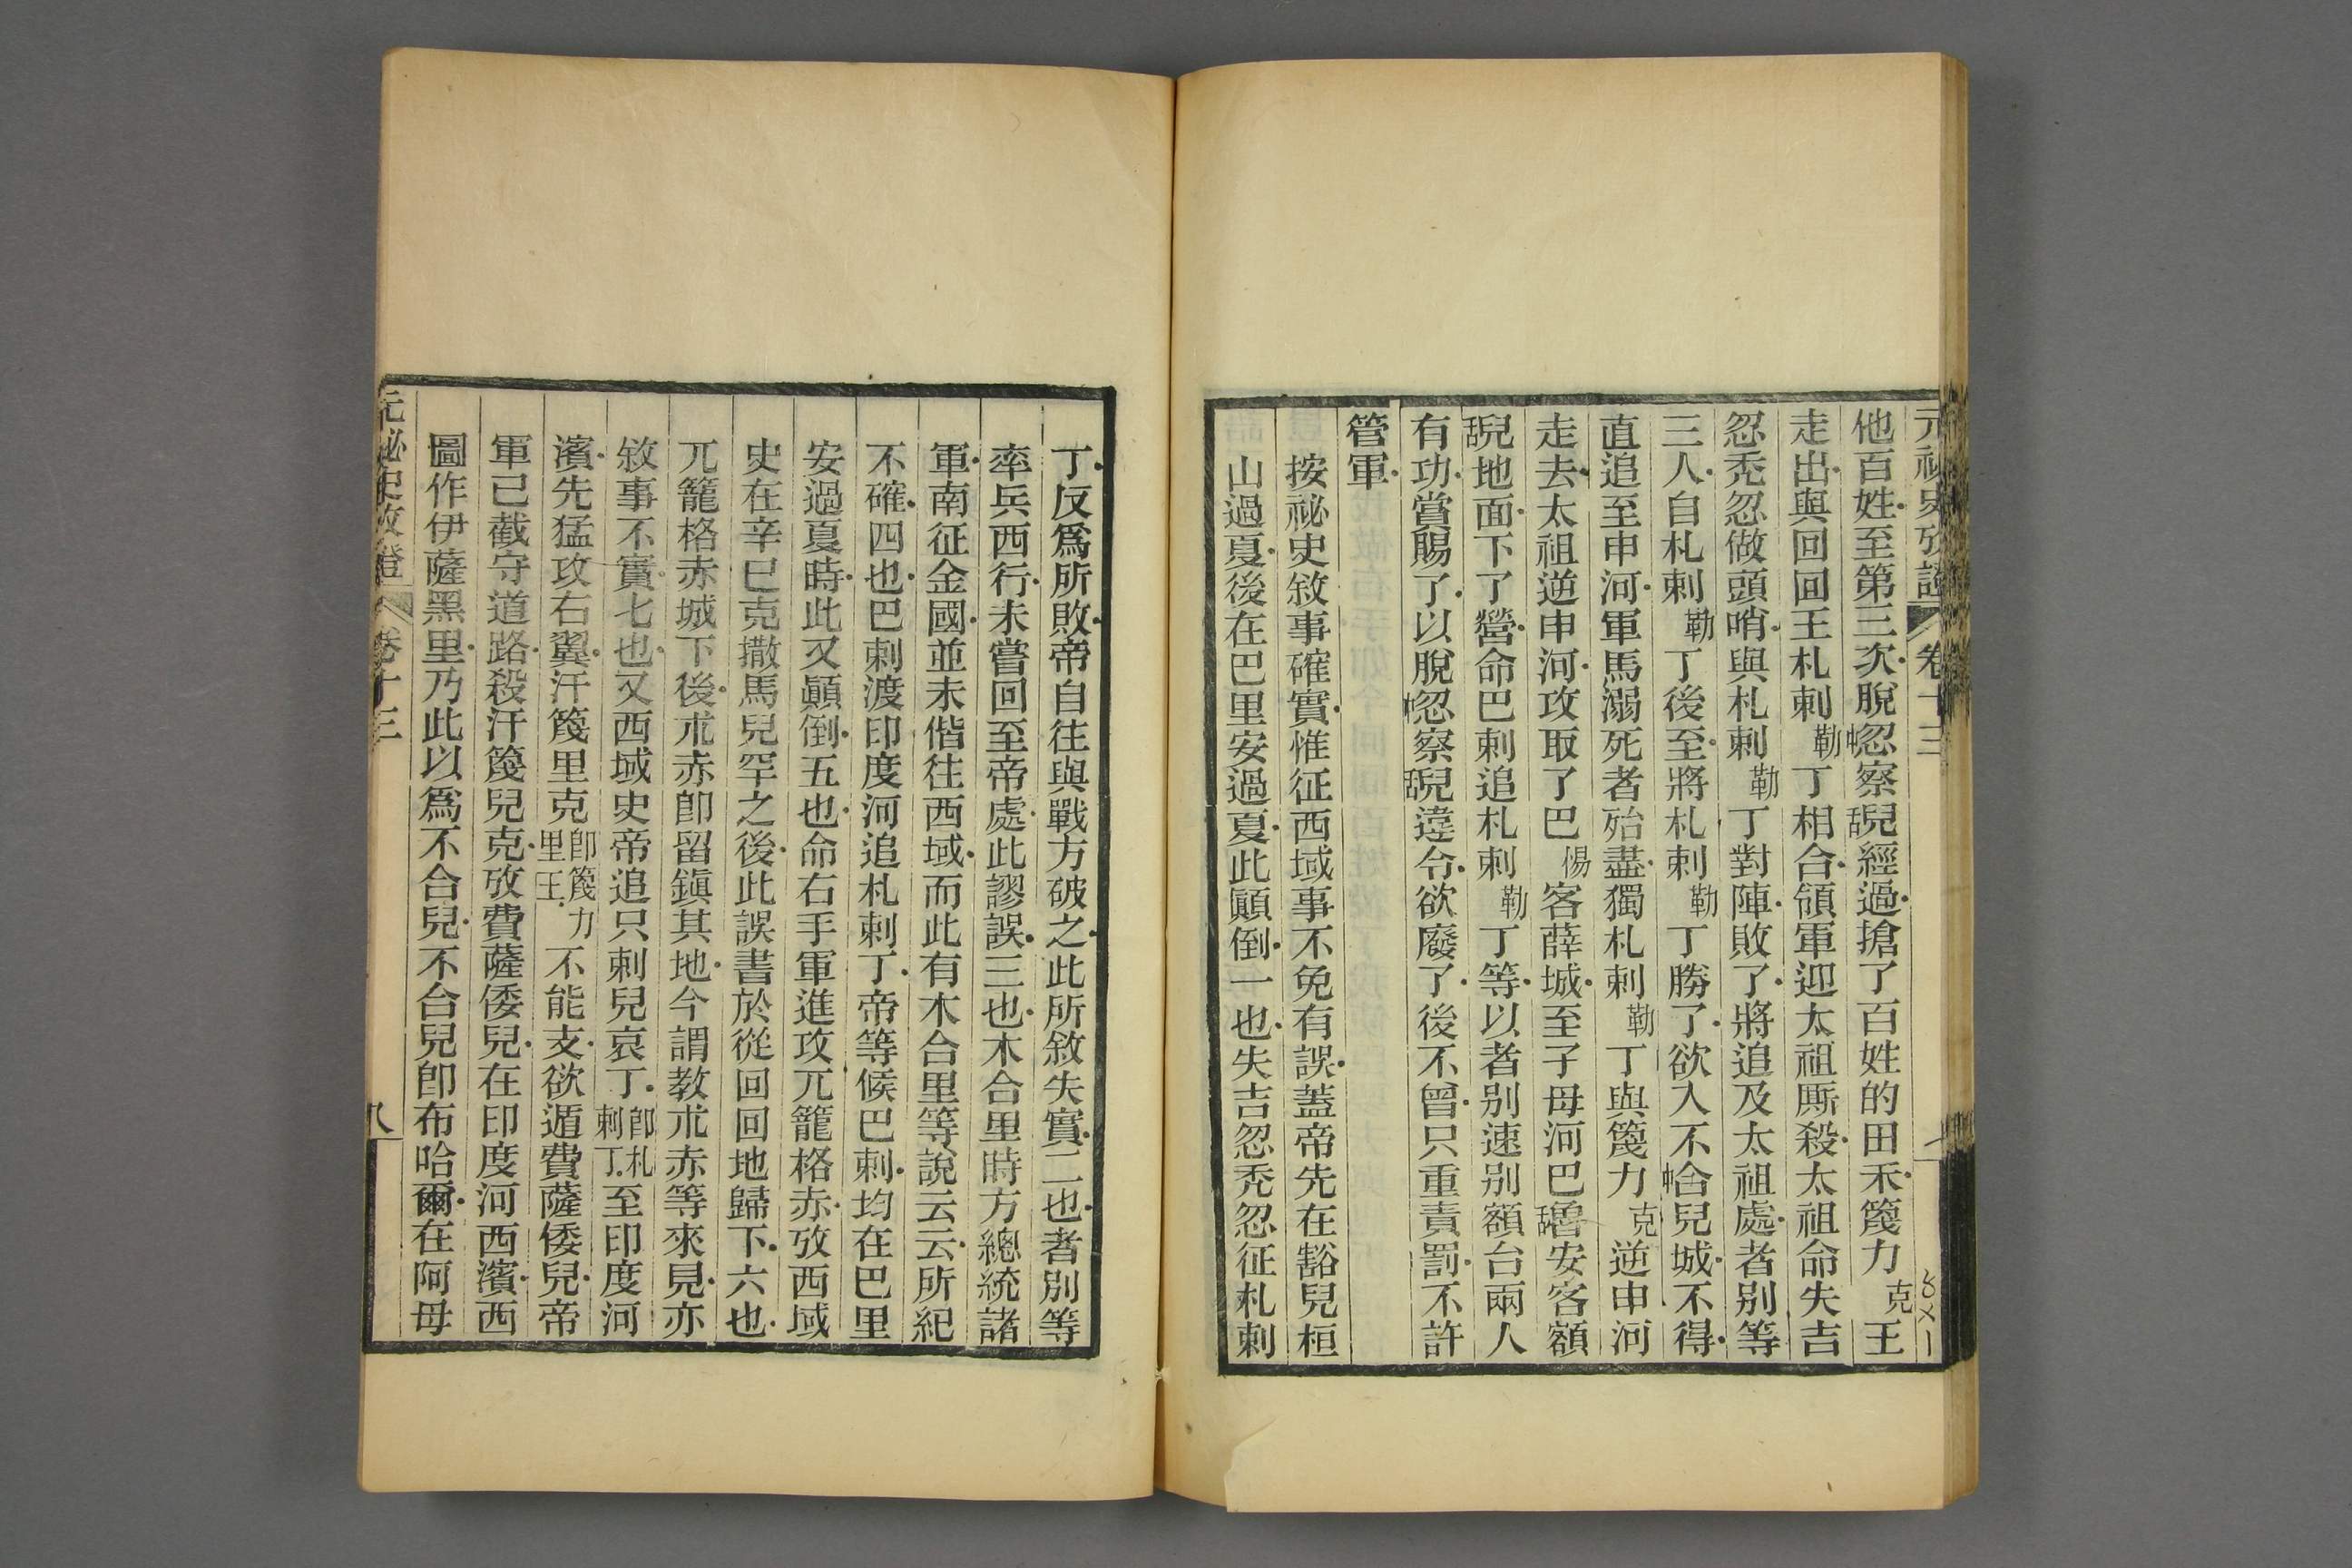 元祕史攷證 卷十三
他百姓至第三次脫中忽察舌兒經過搶了百姓的田禾篾力克王
走出與回回王札剌勒丁相合領軍迎太祖厮殺太祖命失吉
忽禿忽做頭哨與札剌勒丁對陣敗了將追及太祖處者別等
三人自札剌勒丁後至將札剌勒丁勝了欲入不中合兒城不得
直追至申河軍馬溺死者殆盡獨札剌勒丁與篾力克逆申河
走去太祖逆申河攻取了巴惕客薛城至子母河巴舌魯安客額
舌兒地面下了營命巴剌追札剌勒丁等以者別速別額台兩人
有功賞賜了以脫中忽察舌兒違令欲廢了後不曾只重責罰不許
管軍
按祕史敘事確實惟征西域事不免有誤蓋帝先在豁兒桓
山過夏後在巴里安過夏此顚倒一也失吉忽禿忽征札剌
丁反爲所敗帝自往與戰方破之此所敘失實二也者別等
率兵西行未嘗回至帝處此謬誤三也木合里時方總統諸
軍南征金國並未偕往西域而此有木合里等說云云所紀
不確四也巴剌渡印度河追札剌丁帝等候巴剌均在巴里
安過夏時此又顚倒五也命右手軍進攻兀籠格赤攷西域
史在辛巳克撒馬兒罕之後此誤書於從回回地歸下六也
兀籠格赤城下後朮赤卽留鎭其地今謂教朮赤等來見亦
敘事不實七也又西域史帝追只剌兒哀丁卽札剌丁至印度河
濱先猛攻右翼汗篾里克卽篾力里王不能支欲遁費薩倭兒帝
軍已截守道路殺汗篾兒克攷費薩倭兒在印度河西濱西
圖作伊薩黑里乃此以爲不合兒不合兒卽布哈爾在阿母
元祕史攷證 卷十三 八